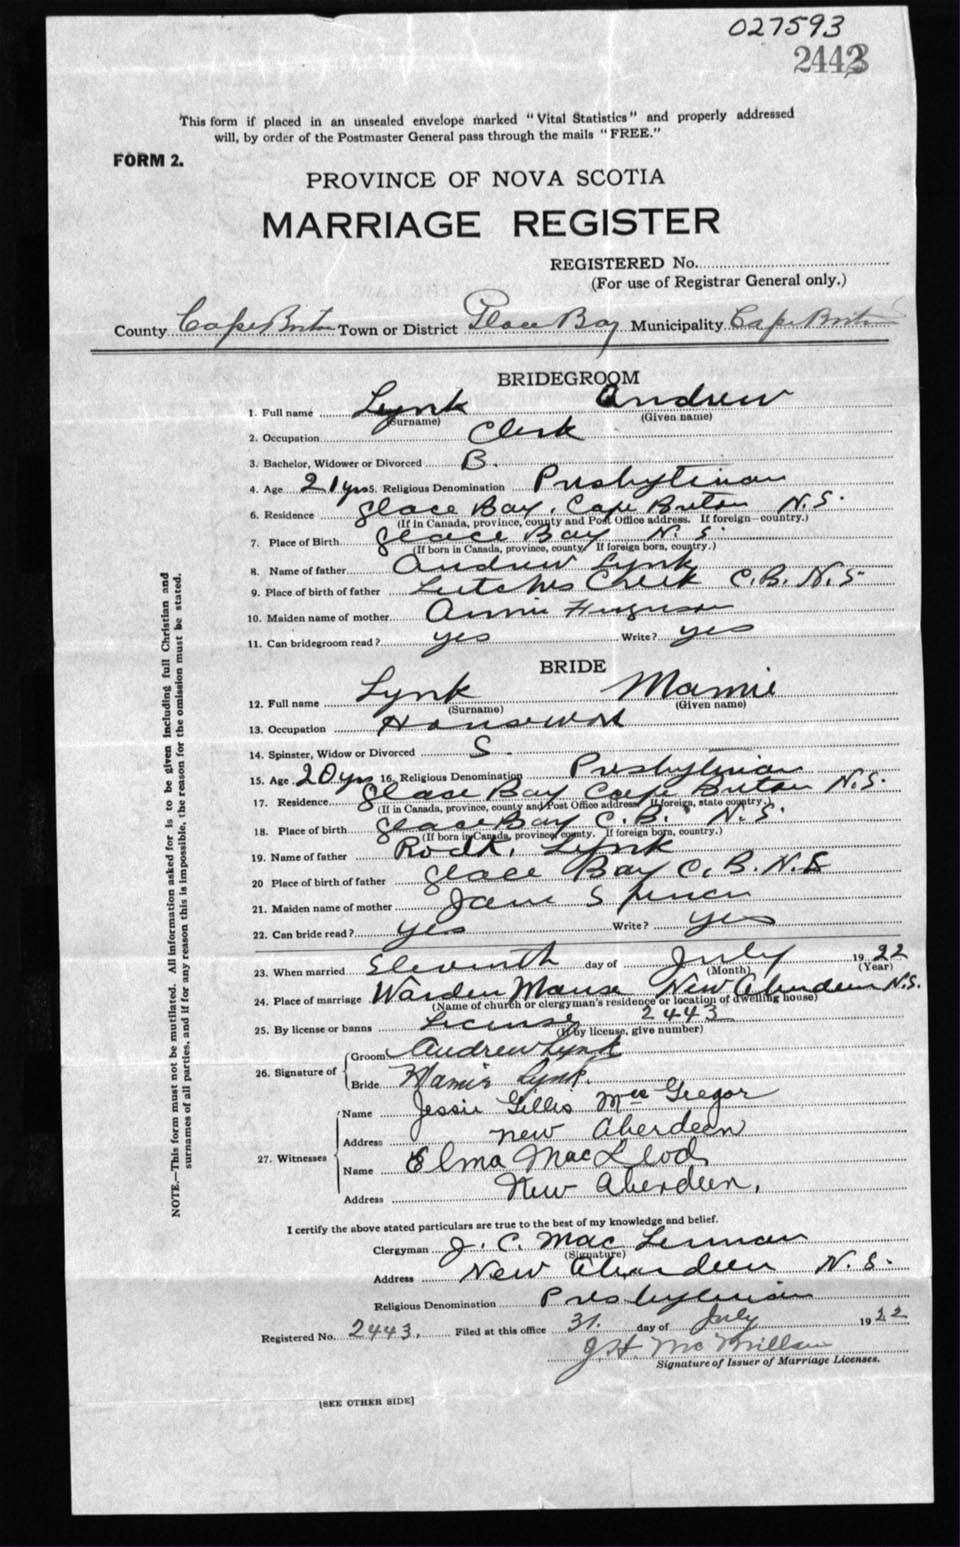 027593
2443
This form if placed in an unsealed envelope marked "Vital Statistics" and properly addressed
will, by order of the Postmaster General pass through the mails "FREE."
FORM 2.
PROVINCE OF NOVA SCOTIA
MARRIAGE REGISTER
REGISTERED No.
(For use of Registrar General only.)
County Cape Breton Town or District Glace Bay Municipality Cape Breton
BRIDEGROOM
1. Full name Lynk Andrew
(Surname) (Given name)
2. Occupation Clerk
3. Bachelor, Widower or Divorced B.
4. Age 21 yrs 5. Religious Denomination Presbyterian
6. Residence Glace Bay, Cape Breton N.S.
(If in Canada, province, county and Post Office address. If foreign—country.)
7. Place of Birth Glace Bay N. S.
(If born in Canada, province, county. If foreign born, country.)
8. Name of father Andrew Lynk
9. Place of birth of father Leitches Creek C.B. N.S.
10. Maiden name of mother Annie Ferguson
11. Can bridegroom read? yes Write? yes
BRIDE
12. Full name Lynk Mamie
(Surname) (Given name)
13. Occupation Housework
14. Spinster, Widow or Divorced S.
15. Age 20 yrs 16. Religious Denomination Presbyterian
17. Residence Glace Bay Cape Breton N.S.
(If in Canada, province, county and Post Office address. If foreign, state country.)
18. Place of birth Glace Bay C.B. N.S.
(If born in Canada, province, county. If foreign born, country.)
19. Name of father Rodk. Lynk
20 Place of birth of father Glace Bay C.B. N.S
21. Maiden name of mother Jane Spencer
22. Can bride read? yes Write? yes
23. When married Eleventh day of July 1922
(Month) (Year)
24. Place of marriage Warden Manse New Aberdeen N.S.
(Name of church or clergyman's residence or location of dwelling house)
25. By license or banns License 2443
(If by license, give number)
26. Signature of
Groom Andrew Lynk
Bride Mamie Lynk.
27. Witnesses
Name Jessie Gillis MacGregor
Address New Aberdeen
Name Elma MacLeod
Address New Aberdeen.
I certify the above stated particulars are true to the best of my knowledge and belief.
Clergyman J. C. Mac Lennan
(Signature)
Address New Aberdeen N.S.
Religious Denomination Presbyterian
Registered No. 2443. Filed at this office 31. day of July 1922
J.H. McMillan
Signature of Issuer of Marriage Licenses.
[SEE OTHER SIDE]
NOTE.—This form must not be mutilated. All information asked for is to be given including full Christian and
surnames of all parties, and if for any reason this is impossible, the reason for the omission must be stated.